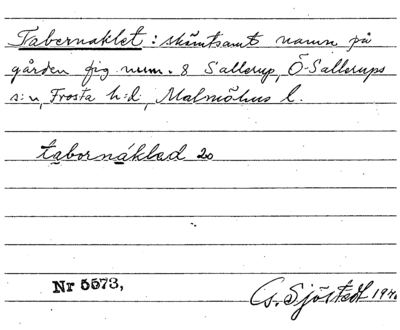 Tabernaklet: skämtsamt namn på
gården fig. num. 8 Sallerup, Ö-Sallerups
s:n, Frosta h:d, Malmöhus l.
tabornáklad 20
Nr 5573,
G. Sjöstedt